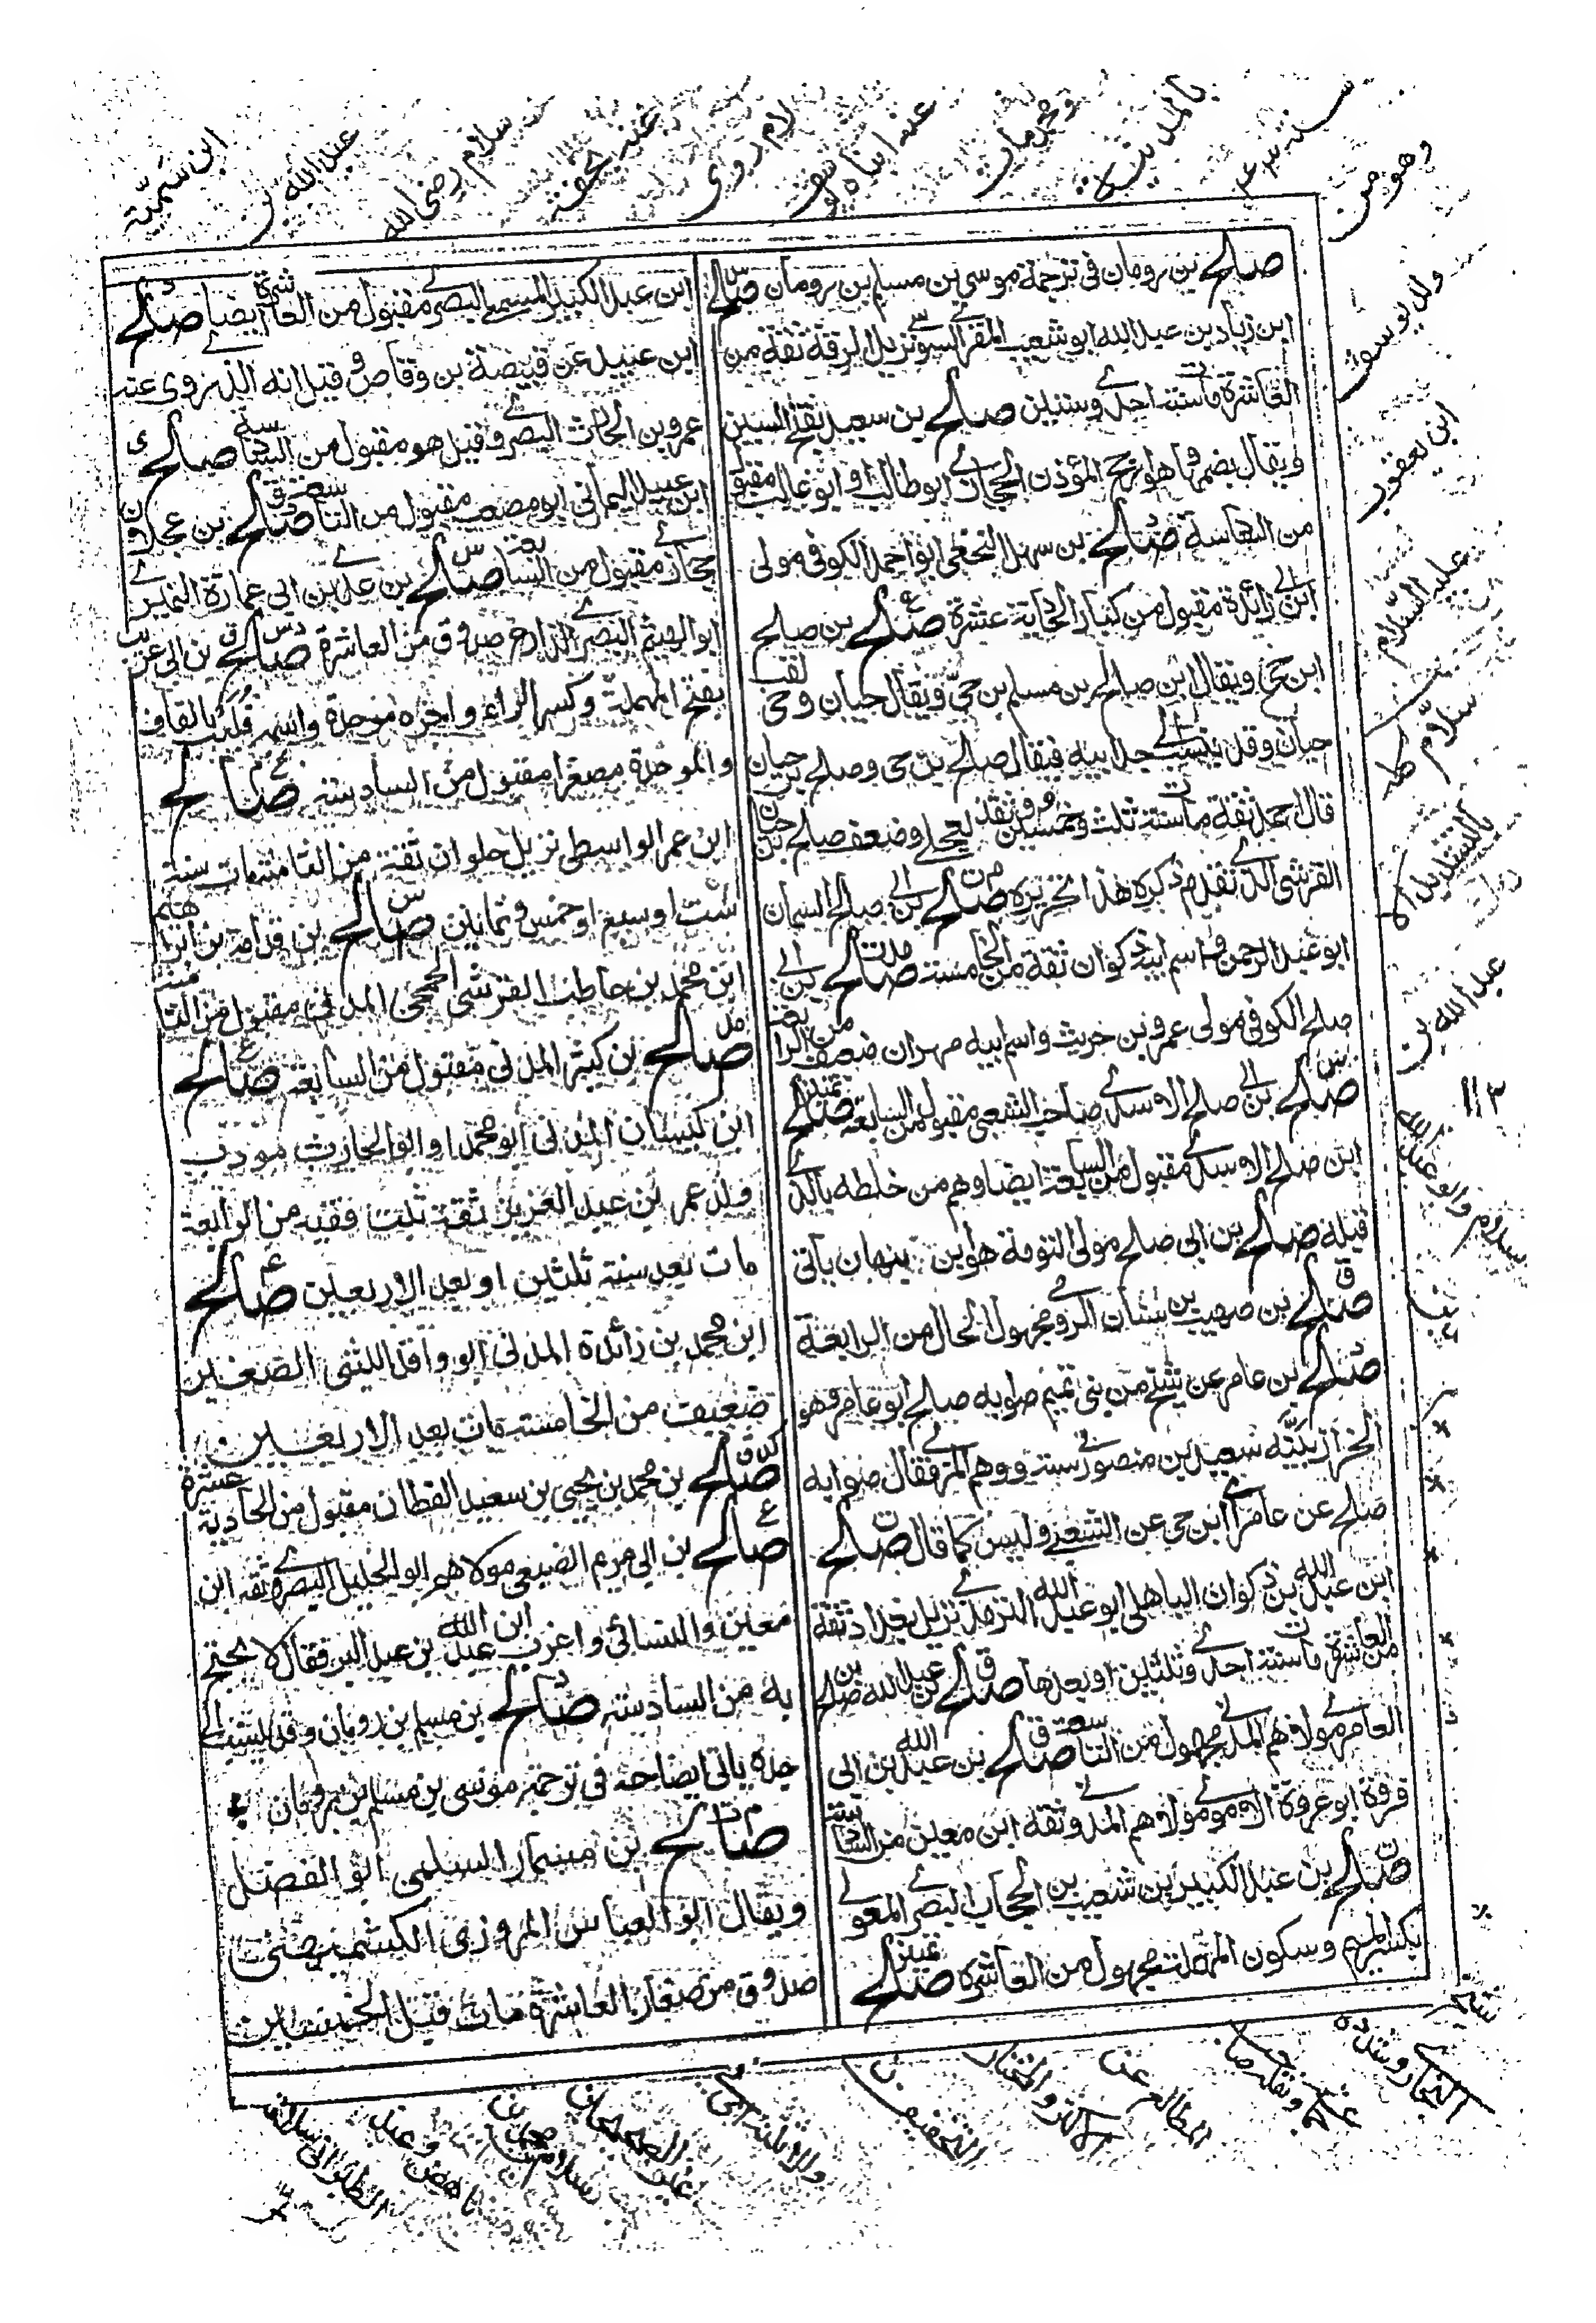 صالح بن رومان في ترجمة موسى بن مسلم بن رومان صالح
ابن زياد بن عبد الله ابو شعيب المقرئ السوسي نزيل الرقة ثقة من
العاشرة مات سنة احدى وستين صالح بن سعيد بفتح السين
ويقال بضمها وهو ارجح المؤذن الحجازي ابو طالب او ابو غالب مقبول
من التاسعة صالح بن سهيل النخعي ابو احمد الكوفي مولى
ابن ابي زائدة مقبول من كبار الحادية عشرة صالح بن صالح
ابن حي ويقال ابن صالح بن مسلم بن حي ويقال حيان وحي لقب
حيان وقد ينسب الى جد ابيه فيقال صالح بن حي وصالح بن حيان
قال احمد ثقة مات سنة ثلث وخمسين وثقه العجلي وضعف صالح بن حيان
القرشي الذي تقدم ذكره هذا تحريره صالح بن ابي صالح السمان
ابو عبد الرحمن واسم ابيه ذكوان ثقة من الخامسة صالح بن ابي
صالح الكوفي مولى عمرو بن حريث واسم ابيه مهران ضعيف من الرابعة
صالح بن ابي صالح الاسدي صاحب الشعبي مقبول من السابعة صالح
ابن صالح الاسدي مقبول من السابعة ايضا وهم من خلطه بالذي
قبله صالح بن ابي صالح مولى التومة هو ابن نبهان ياتي
صالح بن صهيب بن سنان الرومي مجهول الحال من الرابعة
صالح بن عامر عن شيخ من بني تميم صوابه صالح ابو عامر وهو
الخزاز بينه سعيد بن منصور في سننه ووهم المزي فقال صوابه
صالح عن عامر اي ابن حي عن الشعبي وليس كما قال صالح
ابن عبد الله بن ذكوان الباهلي ابو عبد الله الترمذي نزيل بغداد ثقة
من العاشرة مات سنة احدى وثلثين او بعدها صالح بن عبد الله بن صالح
العامري مولاهم المدني مجهول من التاسعة صالح بن عبد الله بن ابي
فروة ابو عروة الاموي مولاهم المدني وثقه ابن معين من السادسة
صالح بن عبد الكبير بن شعيب بن الحبحاب البصري المعولي
بكسر الميم وسكون المهملة مجهول من العاشرة صالح
ابن عبد الكبير المسمعي البصري مقبول من العاشرة ايضا صالح
ابن عبيد عن قبيصة بن وقاص وقيل انه الذي روى عنه
عمرو بن الحارث البصري وقيل هو مقبول من السادسة صالح
ابن عبيد اليماني ابو مصعب مقبول من التاسعة صالح بن عجلان
حجازي مقبول من السابعة صالح بن عدي بن ابي عمارة النميري
ابو الهيثم البصري الذارع صدوق من العاشرة صالح بن ابي عريب
بفتح المهملة وكسر الراء واخره موحدة واسمه قليب بالقاف
والموحدة مصغرا مقبول من السادسة صالح
ابن عمر الواسطي نزيل حلوان ثقة من الثامنة مات سنة
ست او سبع او خمس وثمانين صالح بن قدامة بن ابراهيم
ابن محمد بن حاطب القرشي الجمحي المدني مقبول من الثامنة
صالح بن كثير المدني مقبول من السابعة صالح
ابن كيسان المدني ابو محمد او ابو الحارث مودب
ولد عمر بن عبد العزيز ثقة ثبت فقيه من الرابعة
مات بعد سنة ثلثين او بعد الاربعين صالح
ابن محمد بن زائدة المدني ابو واقد الليثي الصغير
ضعيف من الخامسة مات بعد الاربعين
صالح بن محمد بن يحيى بن سعيد القطان مقبول من الحادية عشرة
صالح بن ابي مريم الضبعي مولاهم ابو الخليل البصري وثقه ابن
معين والنسائي واغرب ابن عبد البر فقال لا يحتج
به من السادسة صالح بن مسلم بن رومان وقد ينسب الى
جده ياتي ايضاحه في ترجمة موسى بن مسلم بن رومان
صالح بن مسمار السلمي ابو الفضل
ويقال ابو العباس المروزي الكشميهني
صدوق من صغار العاشرة مات قبل الخمسين
ابن سمية
عبد الله بن
سلام رضي الله
عنه بخفة
لام روى
عنه ابناه يوسف
ومحمد مات
بالمدينة
سنة ٤٣
وهو من
ولد يوسف
ابن يعقوب
عليه السلام
سلام كله
بالتشديد الا
عبد الله بن
سلام وابو عبد الله
١١٢